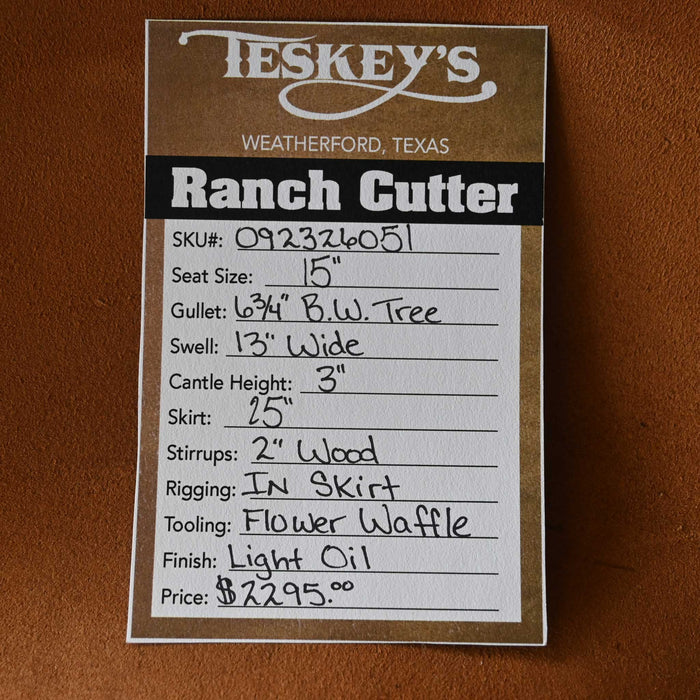 TESKEY'S
WEATHERFORD, TEXAS
Ranch Cutter
SKU#: 092326051
Seat Size: 15"
Gullet: 6 3/4" B.W. Tree
Swell: 13" Wide
Cantle Height: 3"
Skirt: 25"
Stirrups: 2" Wood
Rigging: IN Skirt
Tooling: Flower Waffle
Finish: Light Oil
Price: $2295.00